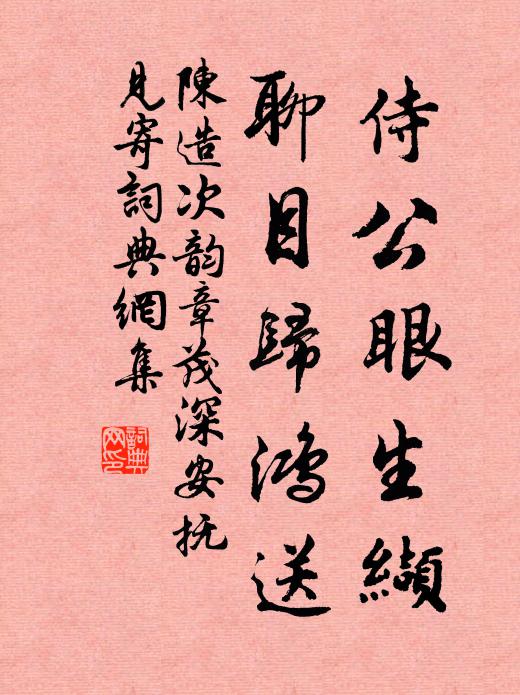 侍公眼生纈
聊目歸鴻送
陳造次韵章茂深安抚
見寄詞典網集
詞典网印